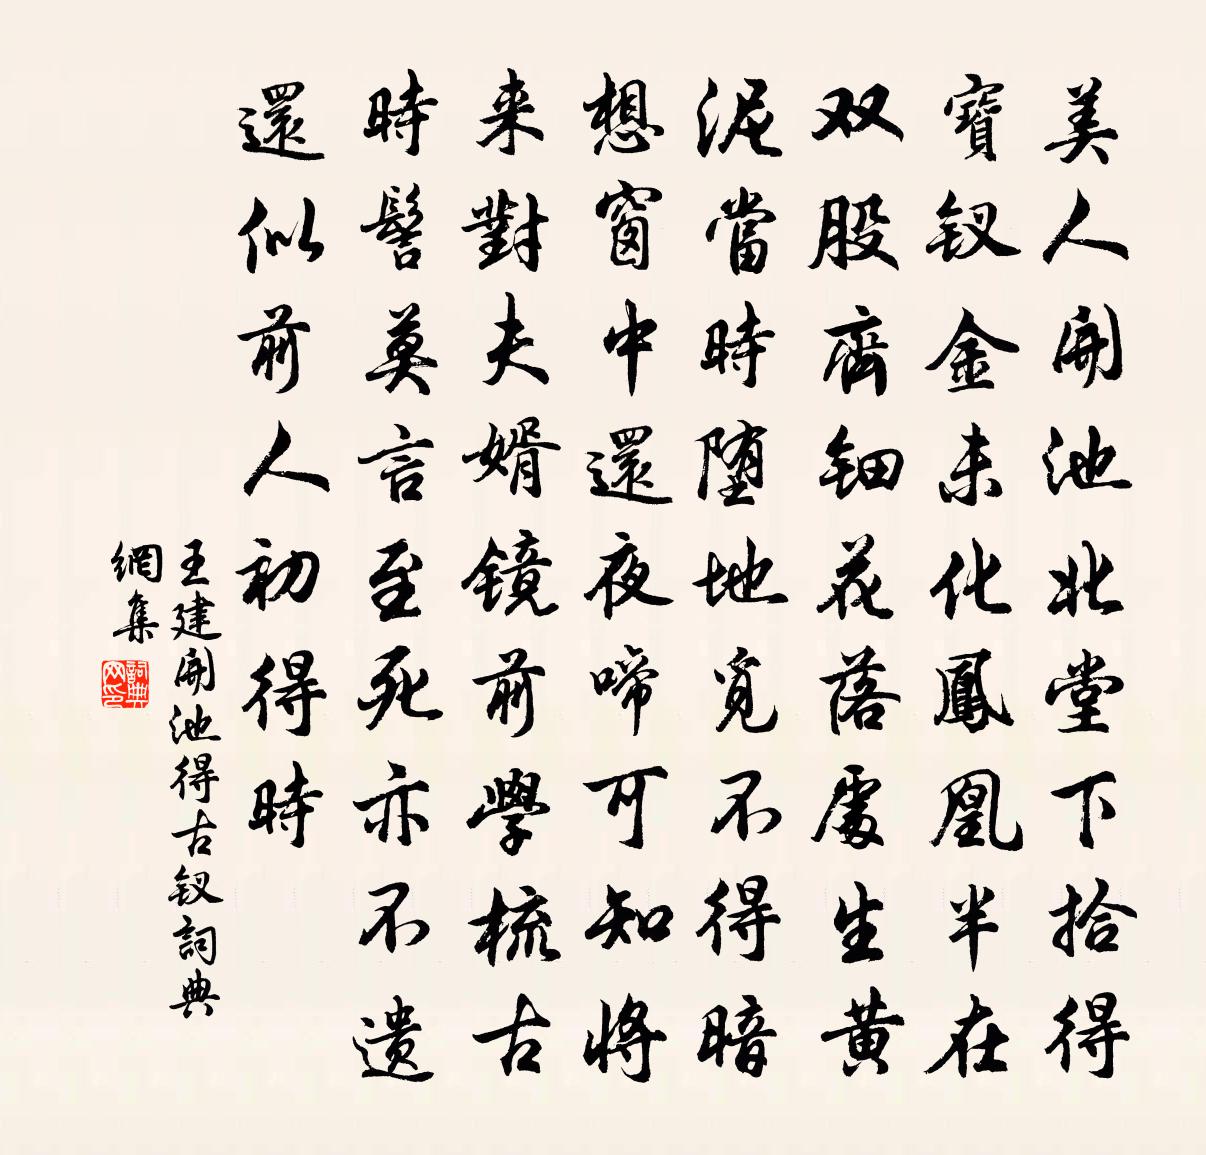 美人開池北堂下拾得
寶钗金未化鳳凰半在
双股齊钿花落處生黄
泥當時堕地覓不得暗
想窗中還夜啼可知将
来對夫婿镜前學梳古
時髻莫言至死亦不遗
還似前人初得時
王建開池得古钗詞典
網集
詞典
网印